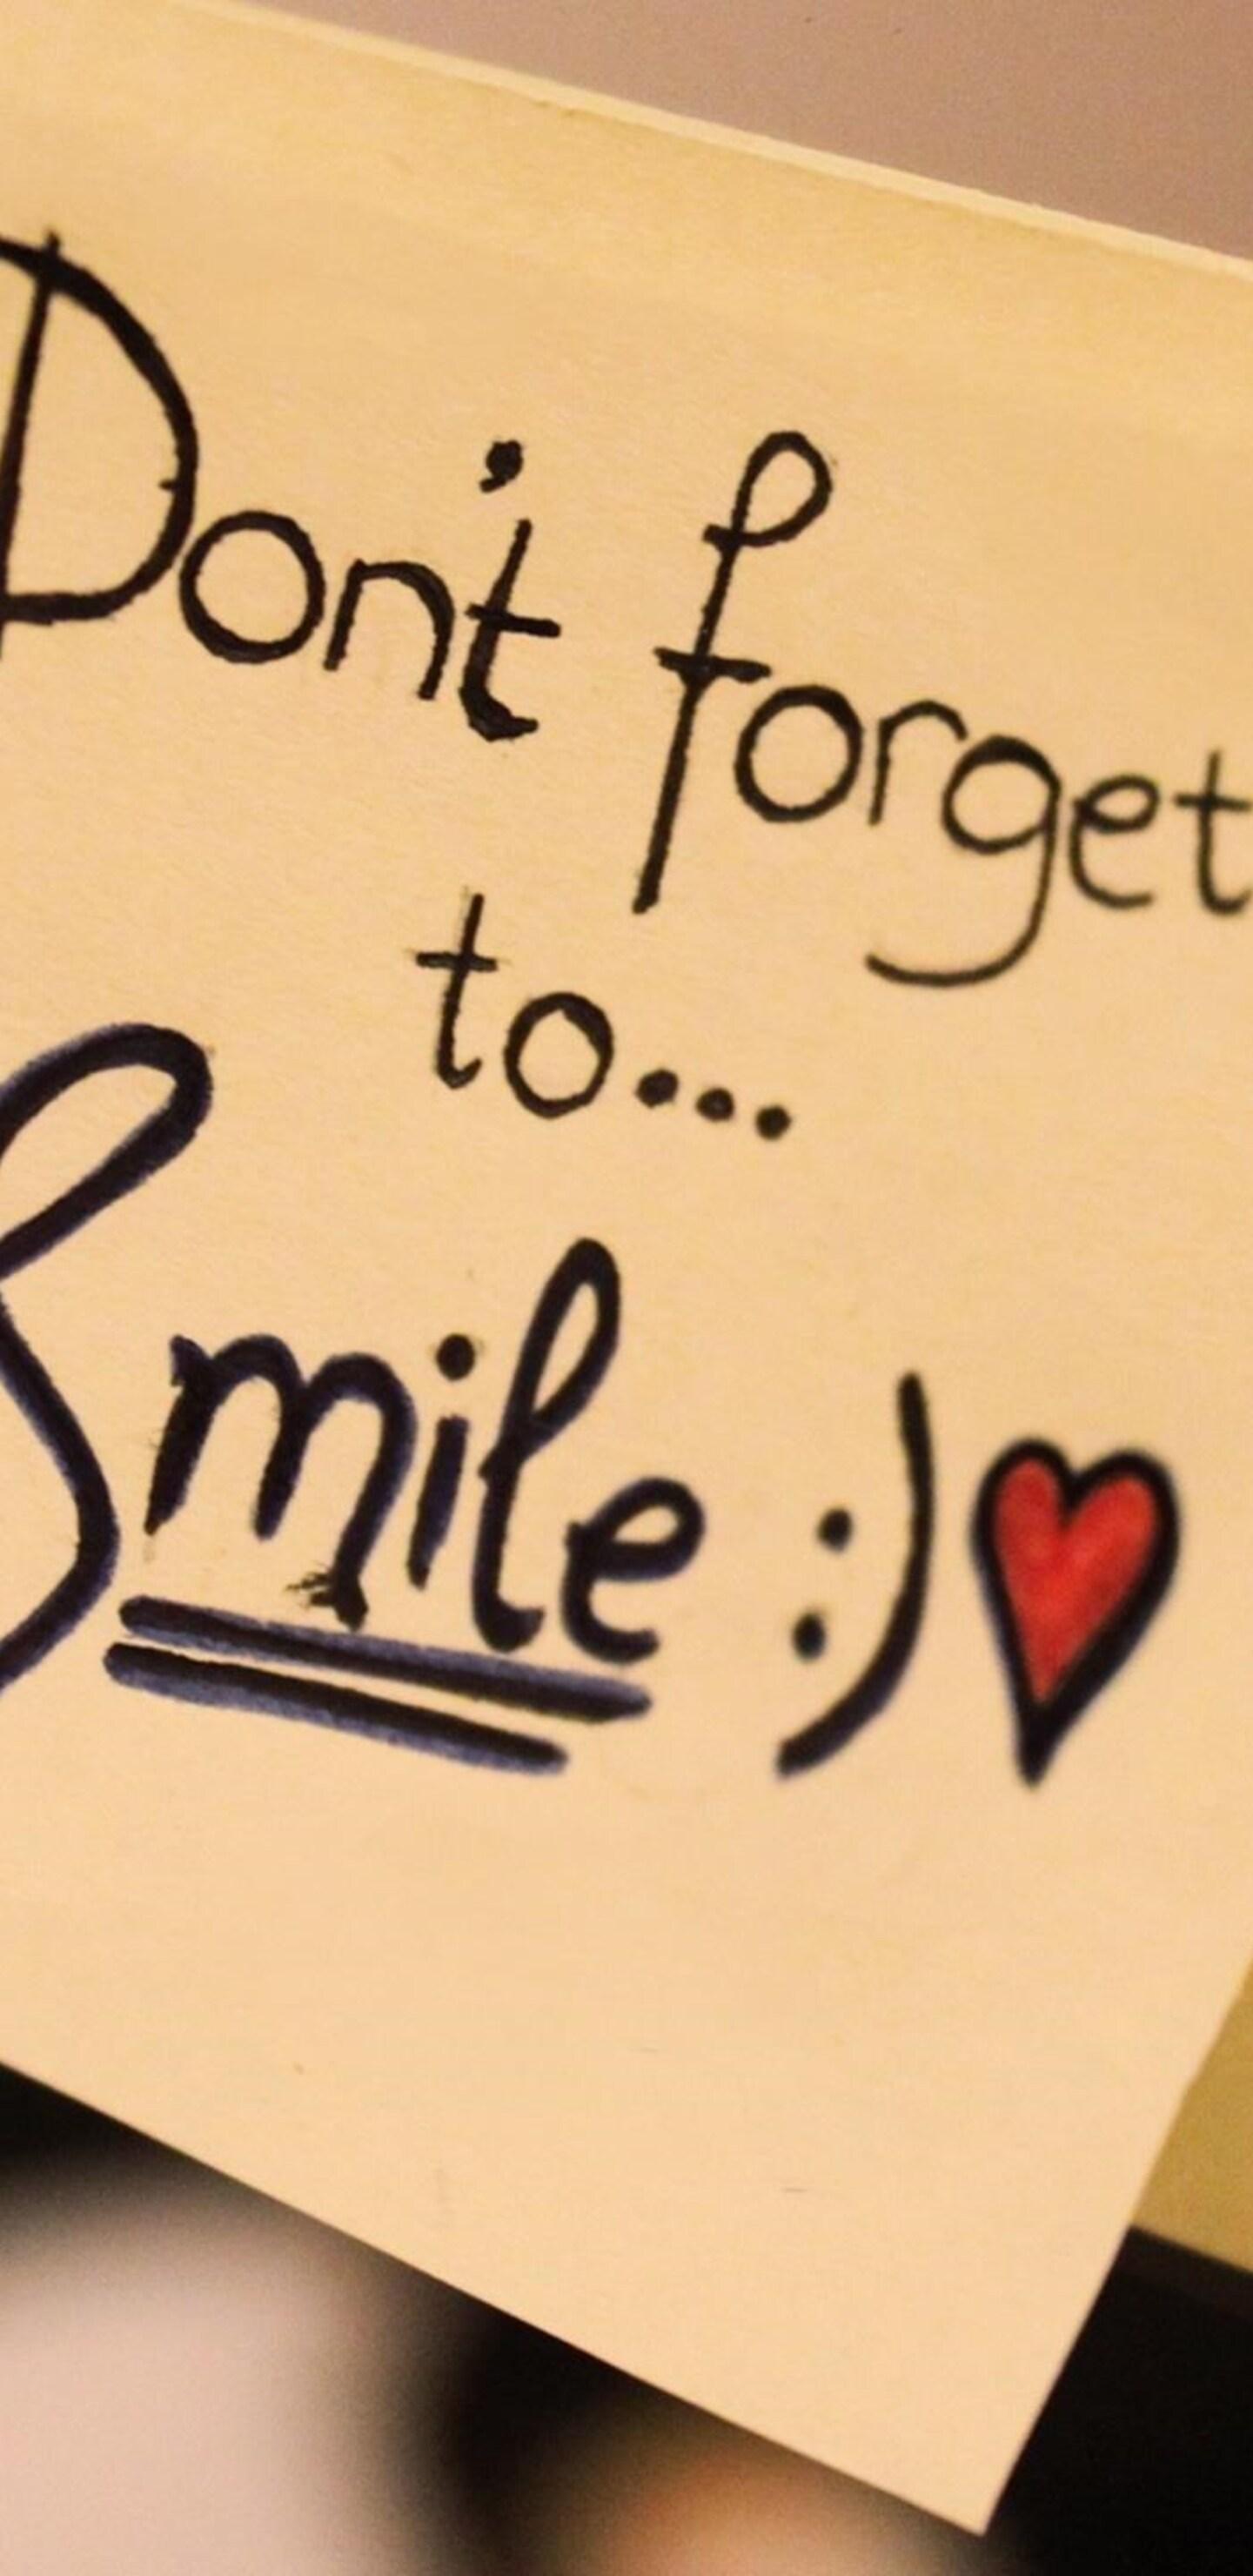 Don't forget
to...
Smile :) ♥